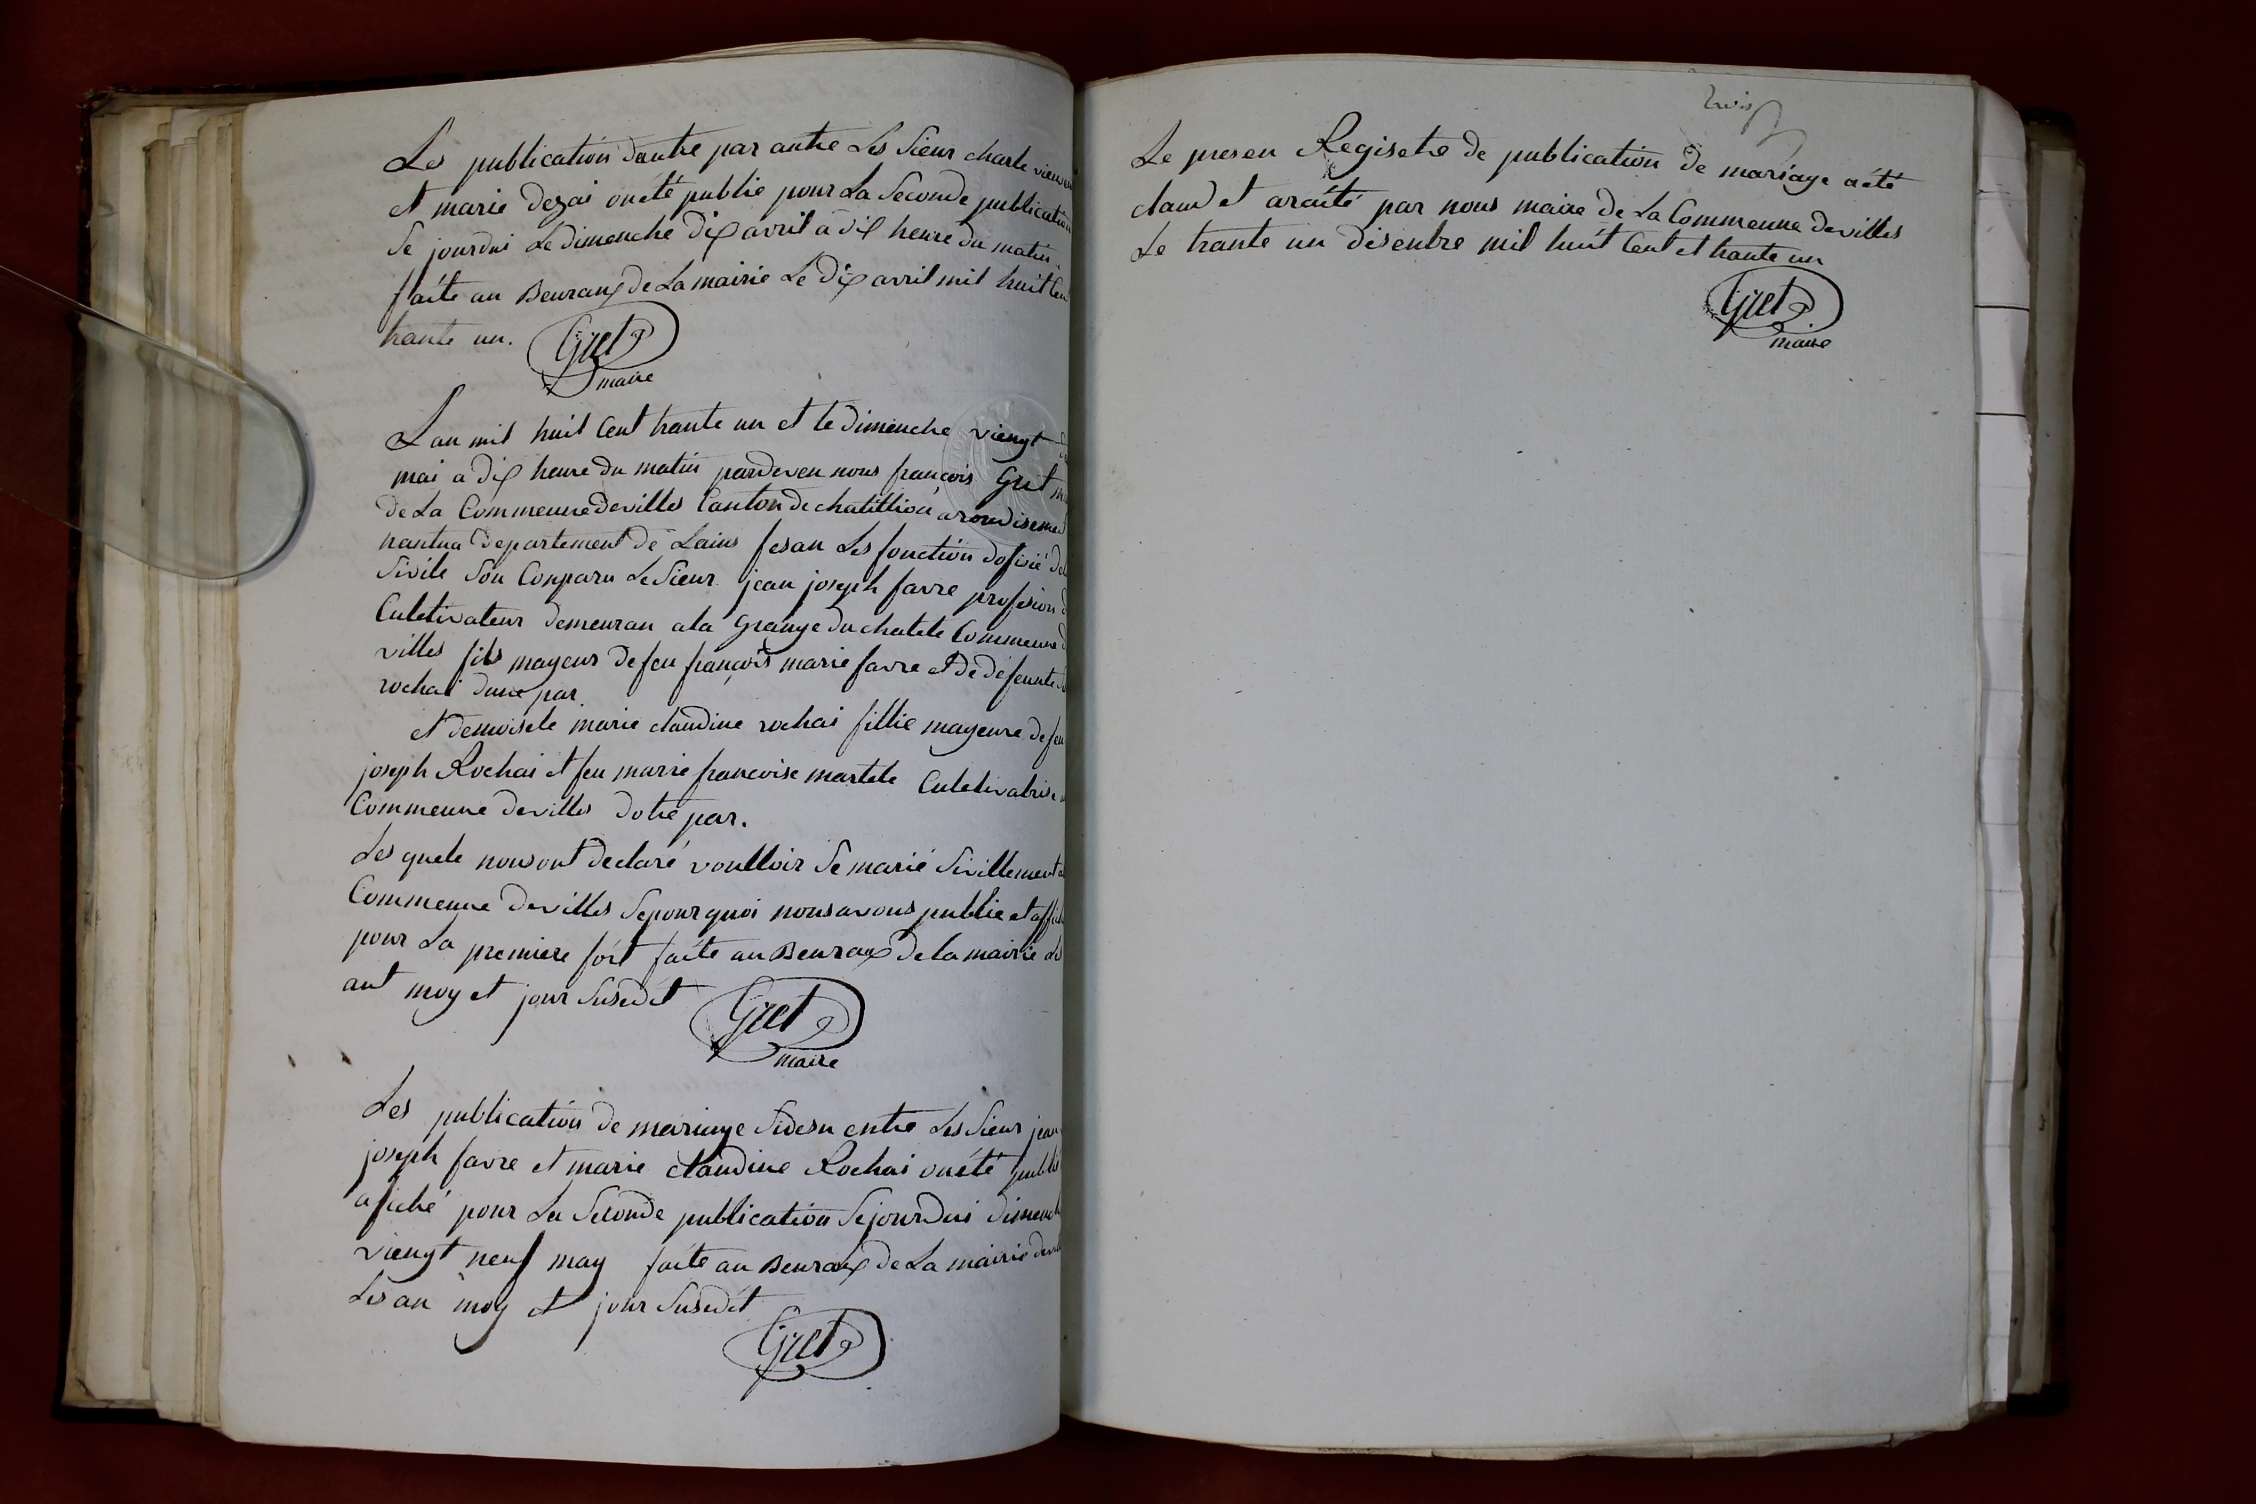 Les publication dantre par antre Les Sieur charle
et marie dezai onété publié pour La Seconde publication
Se jourdui Le dimenche dix avril a dix heure du matin
faite au Beuraux de La mairie Le dix avril mil huit Cen
trante un.
Gret
maire
Lan mil huit Cent trante un et le dimenche viengt
mai a dix heure du matin pardeven nous françois Gret
de La Commeune devilles Canton de chatillion arondisemen
nantua departement de Lains fesan Les fonction dofisié
Sivile Son Conparu Le Sieur jean joseph favre profesion
Culetivateur demeuran ala Grange du chatele Commeune
villes fils mayeur de feu françois marie favre et de defeunte
rochai dune par.
et demoisele marie claudine rochai fillie mayeure de feu
joseph Rochai et feu marie francoise martele Culetivatrise
Commeune devilles dotre par.
Les quele nous ont declaré voulloir Se marié Sivillement
Commeune devilles Sepourquoi nous avons publie et affi
pour La premiere foit faite au Beuraux de la mairie Les
ant moy et jour Susedit
Gret
maire
Les publication de mariage Sidesu entre Les Sieur jean
joseph favre et marie claudine Rochai onété publié
afiché pour La Seconde publication Sejourdui dimench
viengt neuf may faite au Beuraux de La mairie
Les an moy et jour Susedit
Gret
trois
Le presen Regisetre de publication de mariage aété
claud et araité par nous maire de La Commeune devilles
Le trante un disenbre mil huit Cent et trante un
Gret
maire